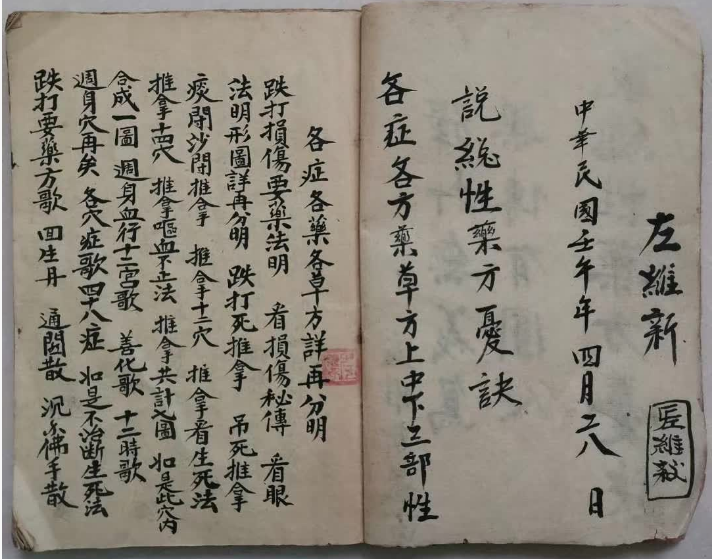 左維新
中華民國壬午年 四月二八日
說總性藥方憂訣
各症各方藥草方上中下三部性
各症各藥各草方詳再分明
跌打損傷要藥法明 看損傷秘傳 看眼
法明形圖詳再分明 跌打死推拿 吊死推拿
痰閉沙閉推拿 推拿十二穴 推拿看生死法
推拿十四穴 推拿嘔血不止法 推拿共計圖 如是此穴內
合成一圖 週身血行十二宮歌 善化歌 十二時歌
週身穴再矣 各穴症歌四十八症 如是不治斷生死法
跌打要藥方歌 回生丹 通關散 沉香佛手散